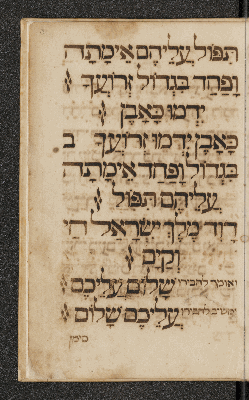 תפול עליהם אימתה
ופחד בגדול זרועך
ידמו כאבן
כאבן ידמו זרועך ב
בגדול ופחד אימתה
עליהם תפול
דוד מלך ישראל חי
וקים
ואומר לחבירו שלום עליכם
לחבירו עליכם שלום
סימן